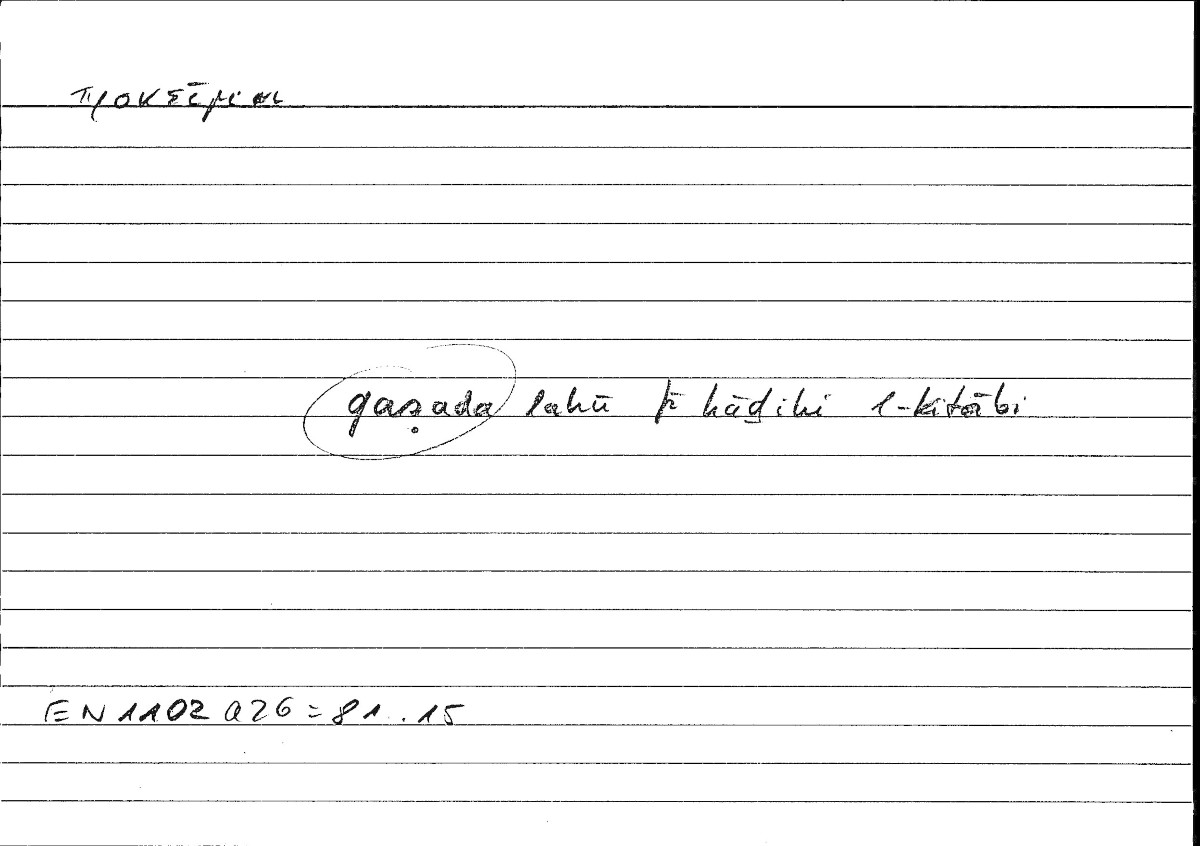 πρόκειμαι
qaṣada lahū fī hāḏihi l-kitābi
EN 1102 a 26 = 81.15